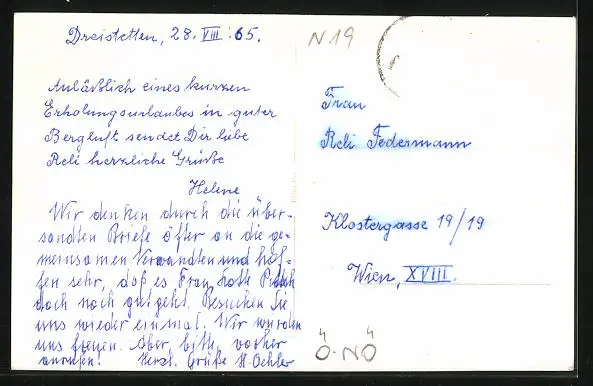 Dreistetten, 28. VIII. 65.
Anläßlich eines kurzen
Erholungsurlaubes in guter
Bergluft sendet Dir liebe
Reli herzliche Grüße
Helene
Wir denken durch die über-
sandten Briefe öfter an die ge-
meinsamen Verwandten und hof-
fen sehr, daß es Frau
doch noch gut geht. Besuchen Sie
uns wieder einmal. Wir würden
uns freuen. Aber, bitte, vorher
anrufen! Herzl. Grüße H. Oehler
N19
Frau
Reli Federmann
Klostergasse 19/19
Wien, XVIII.
Ö-NÖ